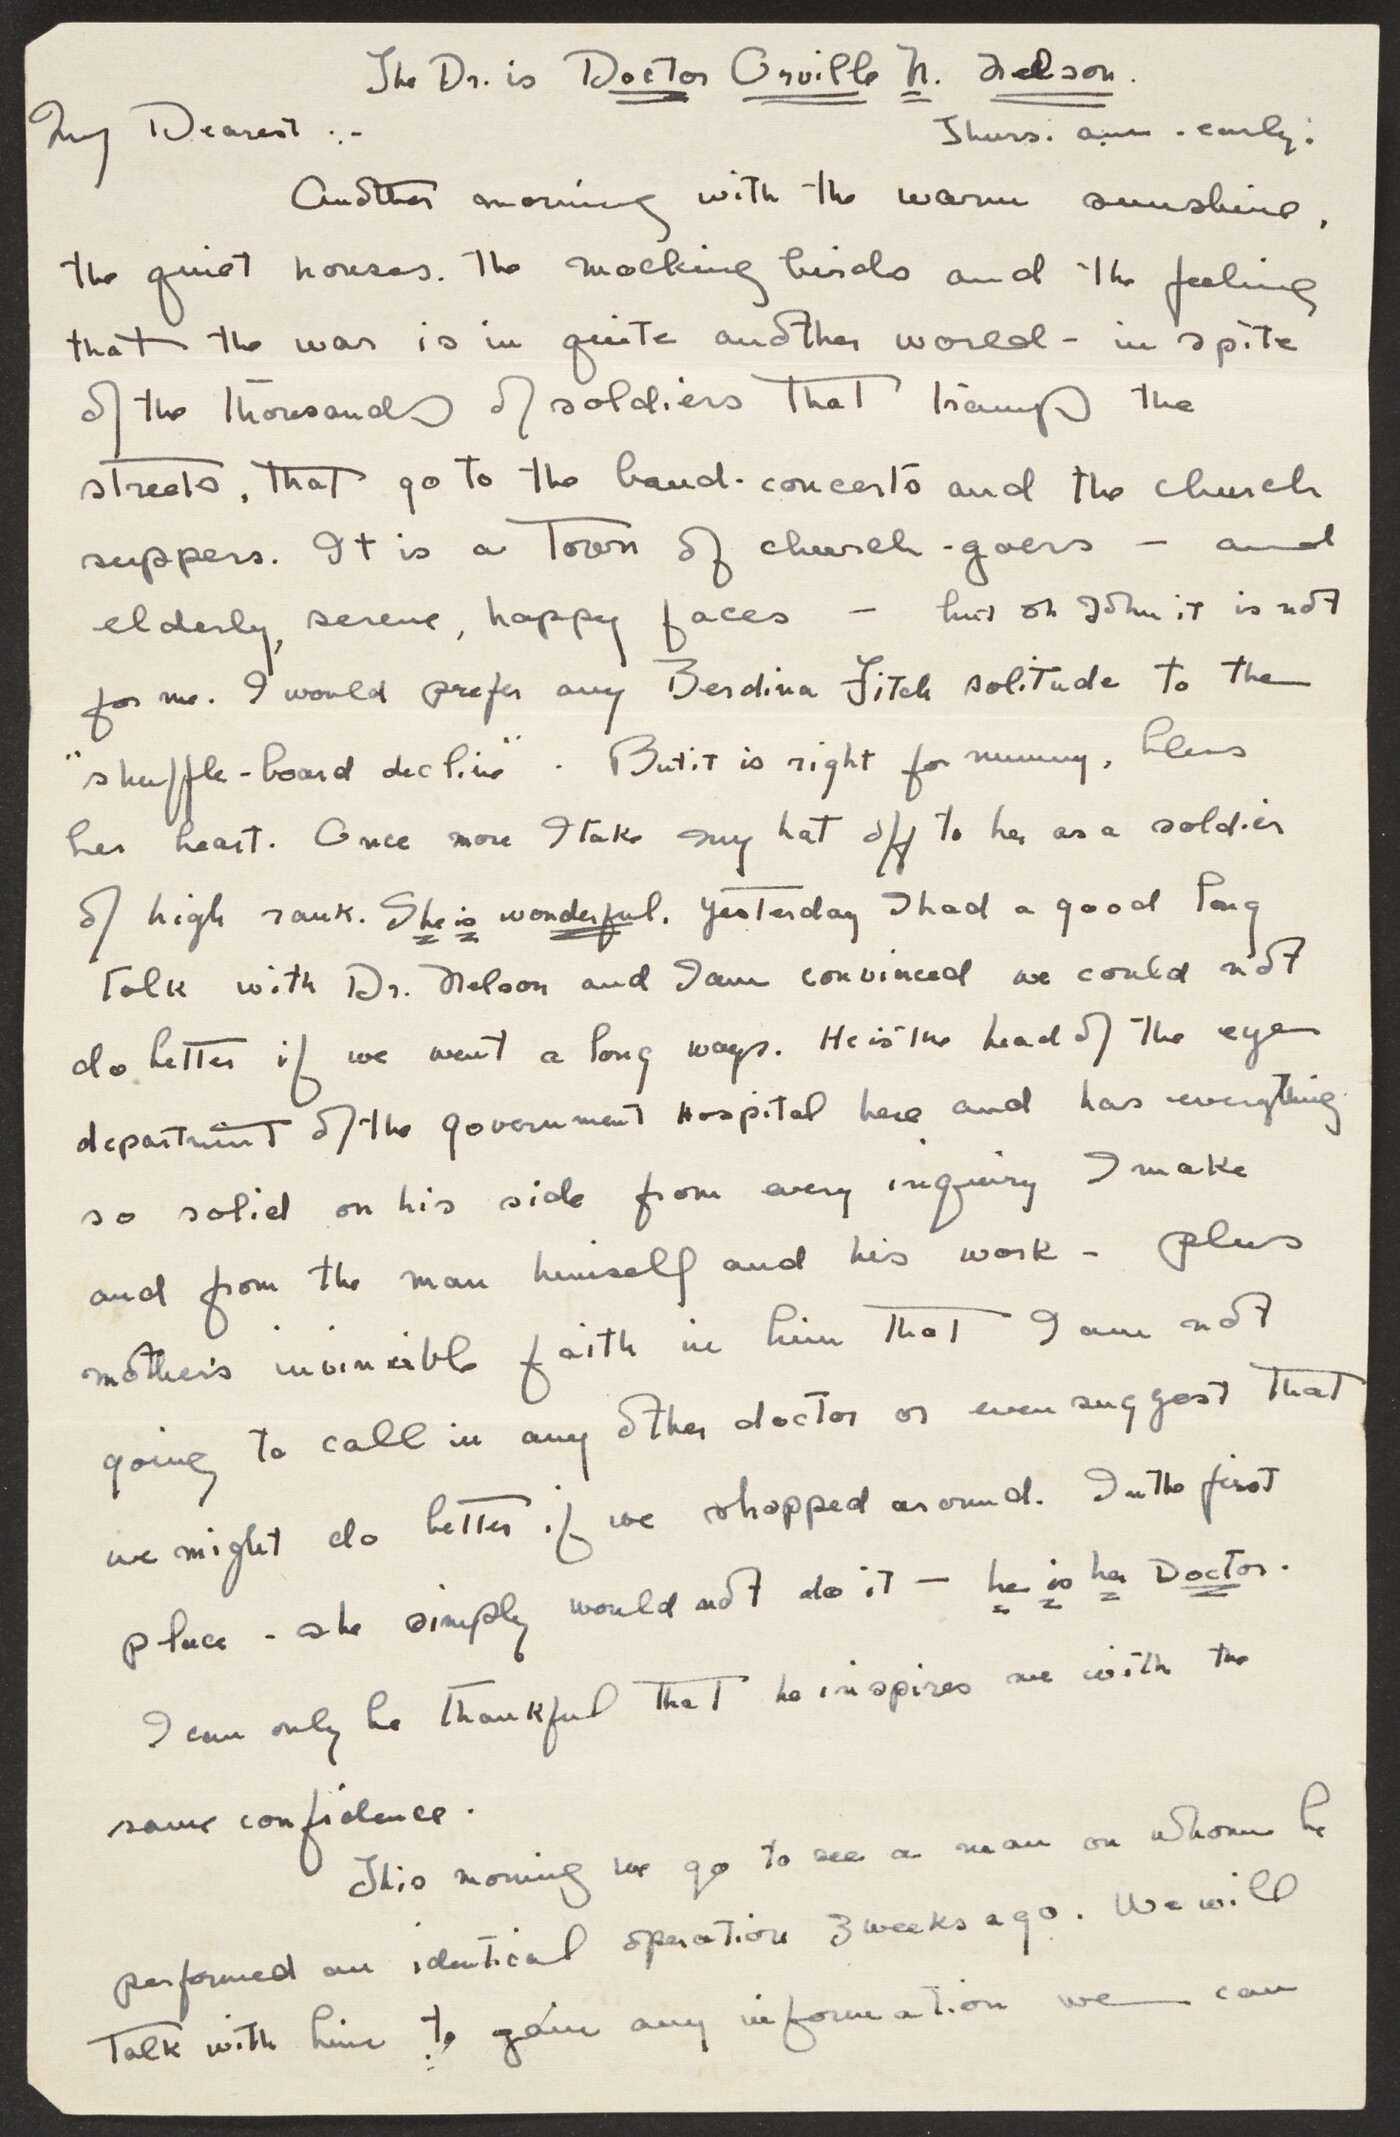 The Dr. is Doctor Orville N. Nelson.
My Dearest :-
Thurs. am - early:
Another morning with the warm sunshine,
the quiet houses. the mocking birds and the feeling
that the war is in quite another world - in spite
of the thousands of soldiers that tramp the
streets, that go to the band-concerts and the church
suppers. It is a town of church-goers — and
elderly, serene, happy faces — but oh John it is not
for me. I would prefer any Berdina Fitch solitude to the
"shuffle-board decline". But it is right for mummy, bless
her heart. Once more I take my hat off to her as a soldier
of high rank. She is wonderful. Yesterday I had a good long
talk with Dr. Nelson and I am convinced we could not
do better if we went a long ways. He is the head of the eye
department of the government hospital here and has everything
so solid on his side from every inquiry I make
and from the man himself and his work - plus
mother's invincible faith in him that I am not
going to call in any other doctor or even suggest that
we might do better if we shopped around. In the first
place - she simply would not do it — he is her Doctor.
I can only be thankful that he inspires me with the
same confidence.
This morning we go to see a man on whom he
performed an identical operation 3 weeks ago. We will
talk with him to gain any information we can